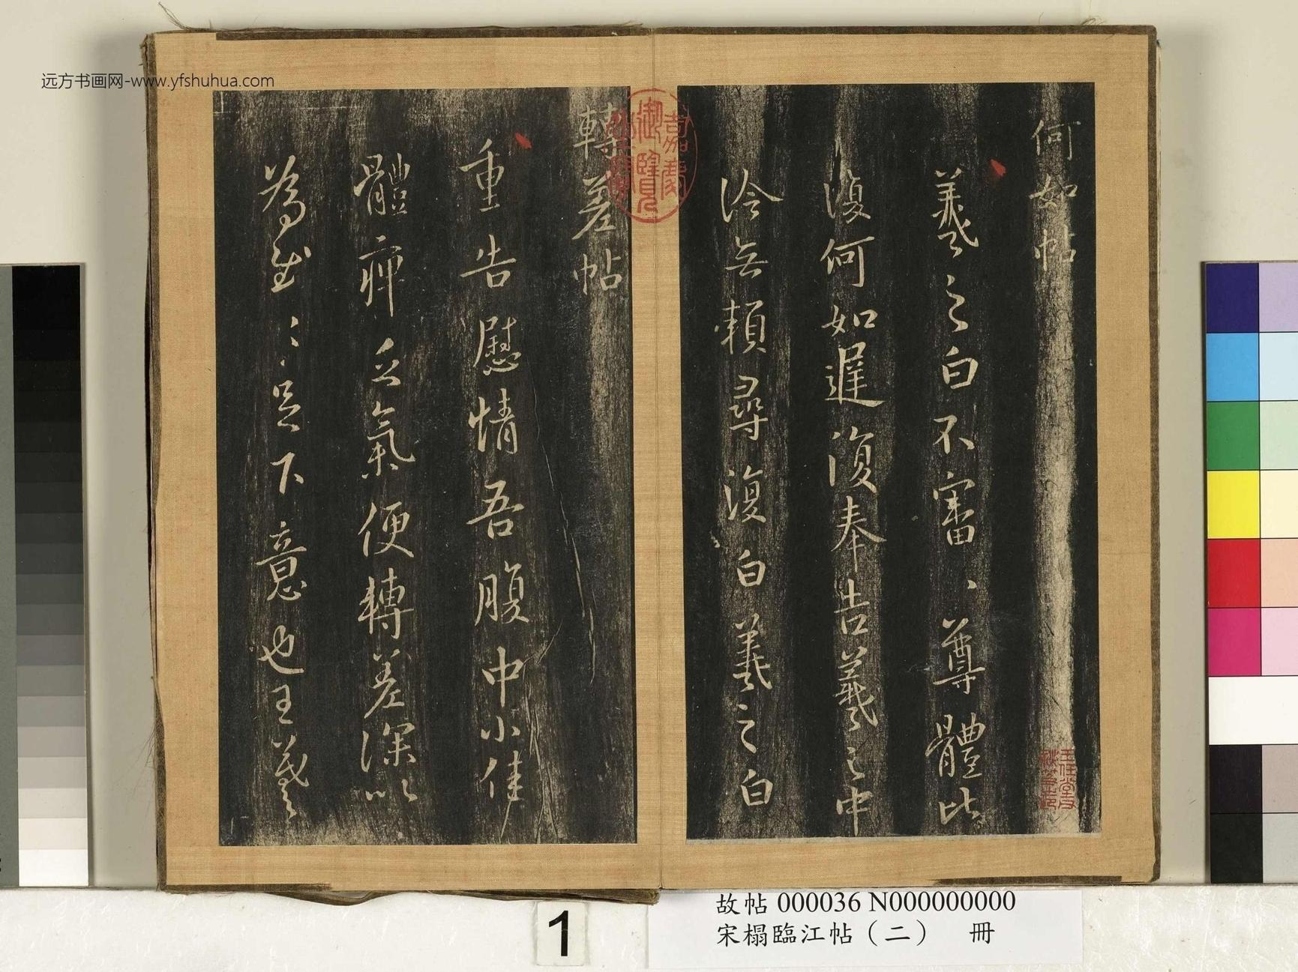 远方书画网-www.yfshuhua.com
何如帖
羲之白不審、尊體比
復何如遲復奉告羲之中
冷無賴尋復白羲之白
嘉慶御覽之寶
轉差帖
重告慰情吾腹中小佳
體痺乏氣便轉差深以
為慰〻足下意也王羲
1
故帖 000036 N000000000
宋榻臨江帖（二） 冊